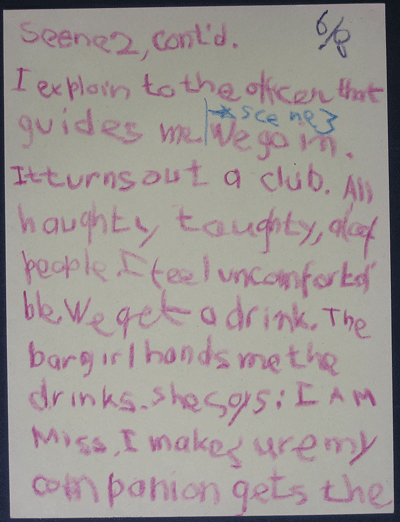 Scene2, cont'd. 6/8
I explain to the officer that
guides me *scene3 We go in.
It turns out a club. All
haughty taughty, aloof
people. I feel uncomforta
ble. We get a drink. The
bargirl hands me the
drinks. She says: I AM
Miss. I make sure my
companion gets the